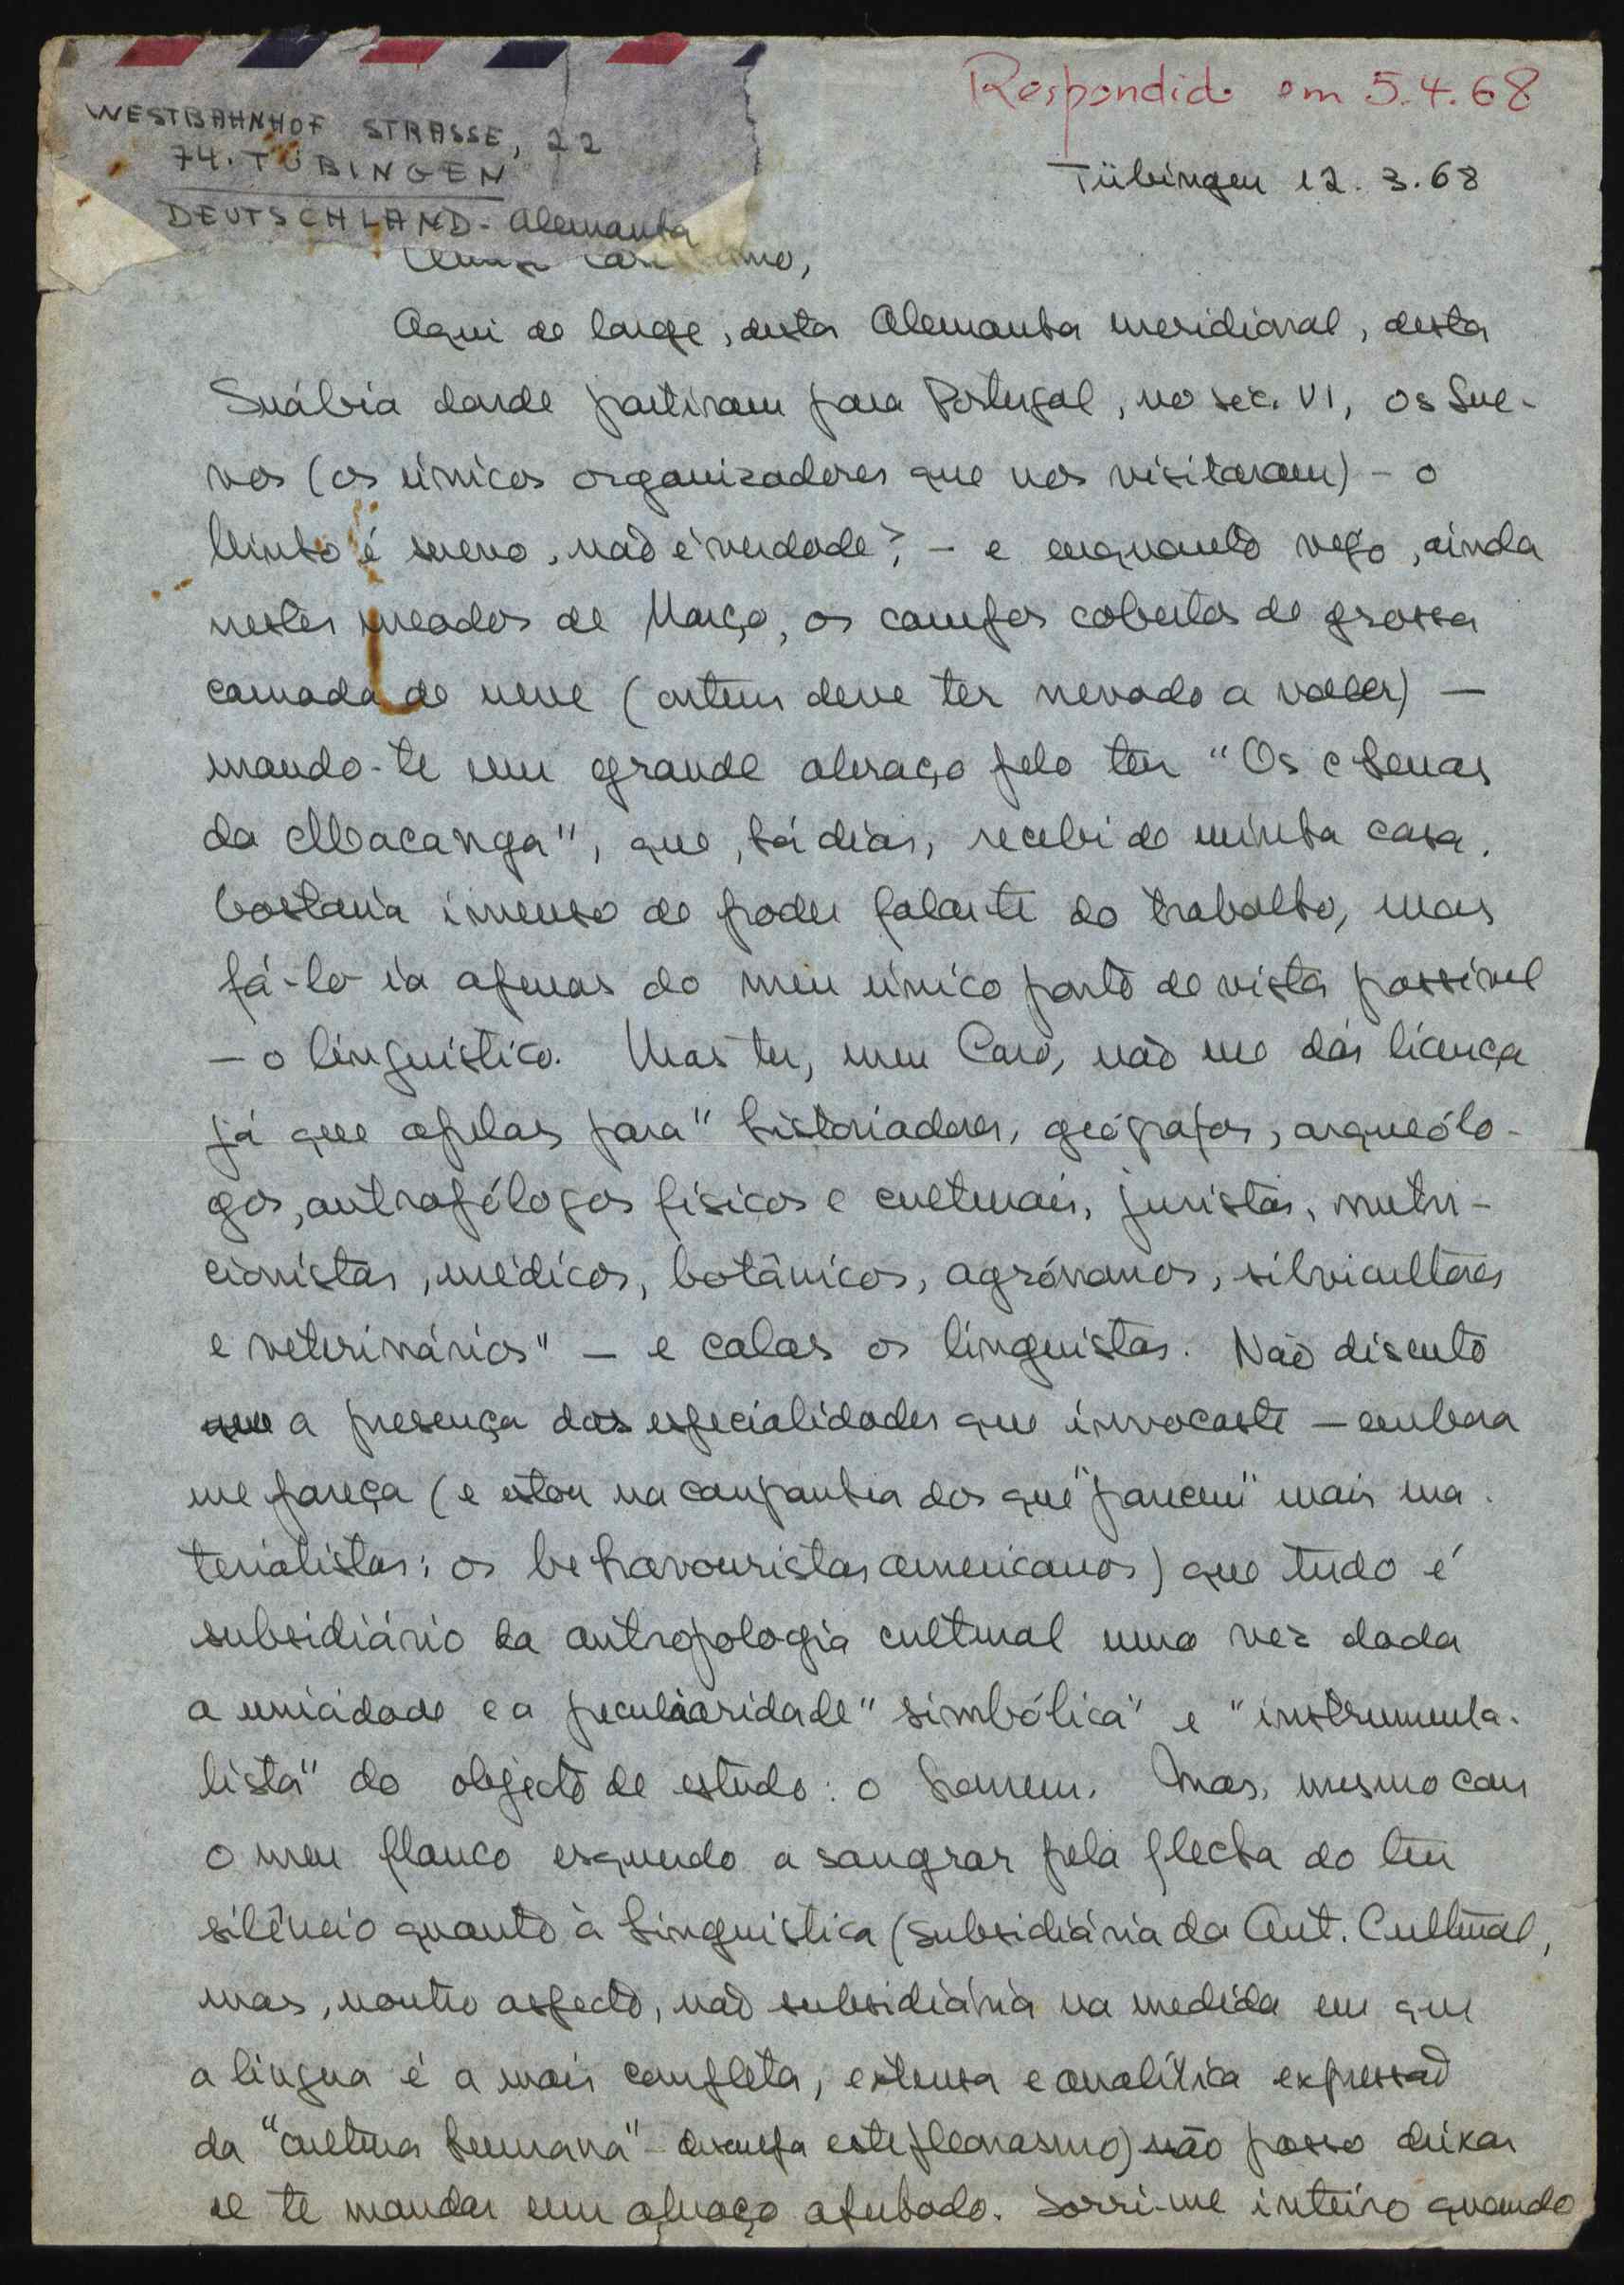 WESTBAHNHOF STRASSE, 22
74. TÜBINGEN
DEUTSCHLAND - Alemanha
Respondido em 5.4.68
Tübingen 12.3.68
Aqui de longe, desta Alemanha meridional, desta
Suábia donde partiram para Portugal, no sec. VI, os Sue-
vos (os únicos organizadores que nos visitaram) - o
Minho é suevo, não é verdade? - e enquanto vejo, ainda
nestes meados de Março, os campos cobertos de grossa
camada de neve (ontem deve ter nevado a valer) -
mando-te um grande abraço pelo teu "Os chenas
da Macanga", que, há dias, recebi de minha casa.
Gostaria imenso de poder falar-te do trabalho, mas
fá-lo-ia apenas do meu único ponto de vista possível
- o linguístico. Mas tu, meu Caro, não me dás licença
já que apelas para "historiadores, geógrafos, arqueólo-
gos, antropólogos físicos e culturais, juristas, nutri-
cionistas, médicos, botânicos, agrónomos, silvicultores
e veterinários" - e calas os linguistas. Não discuto
que a presença das especialidades que invocaste - embora
me pareça (e estou na companhia dos que "parecem" mais ma-
terialistas: os behavouristas americanos) que tudo é
subsidiário da antropologia cultural uma vez dada
a unicidade e a peculiaridade "simbólica" e "instrumenta-
lista" do objecto de estudo: o homem. Mas, mesmo com
o meu flanco esquerdo a sangrar pela flecha do teu
silêncio quanto à Linguistica (subsidiária da Ant. Cultural,
mas, noutro aspecto, não subsidiária na medida em que
a língua é a mais completa, extensa e analítica expressão
da "cultura humana" - desculpa este pleonasmo) não posso deixar
de te mandar um abraço apertado. Sorri-me inteiro quando